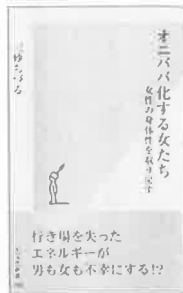 オニババ化する女たち
女性の身体性を取り戻す
三砂ちづる
行き場を失った
エネルギーが
男も女も不幸にする!?